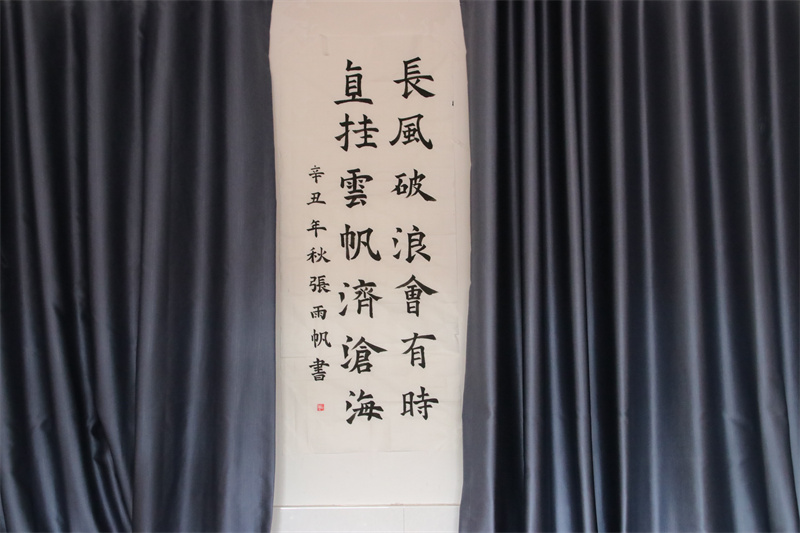 長風破浪會有時
直挂雲帆濟滄海
辛丑年秋張雨帆書